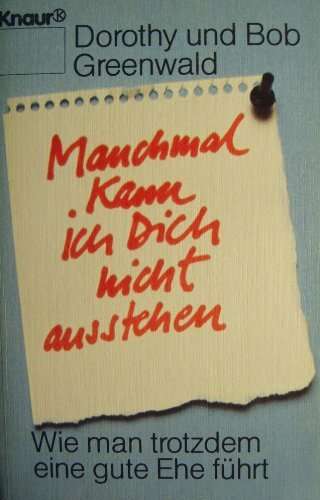 Knaur®
Dorothy und Bob
Greenwald
Manchmal
kann
ich Dich
nicht
ausstehen
Wie man trotzdem
eine gute Ehe führt